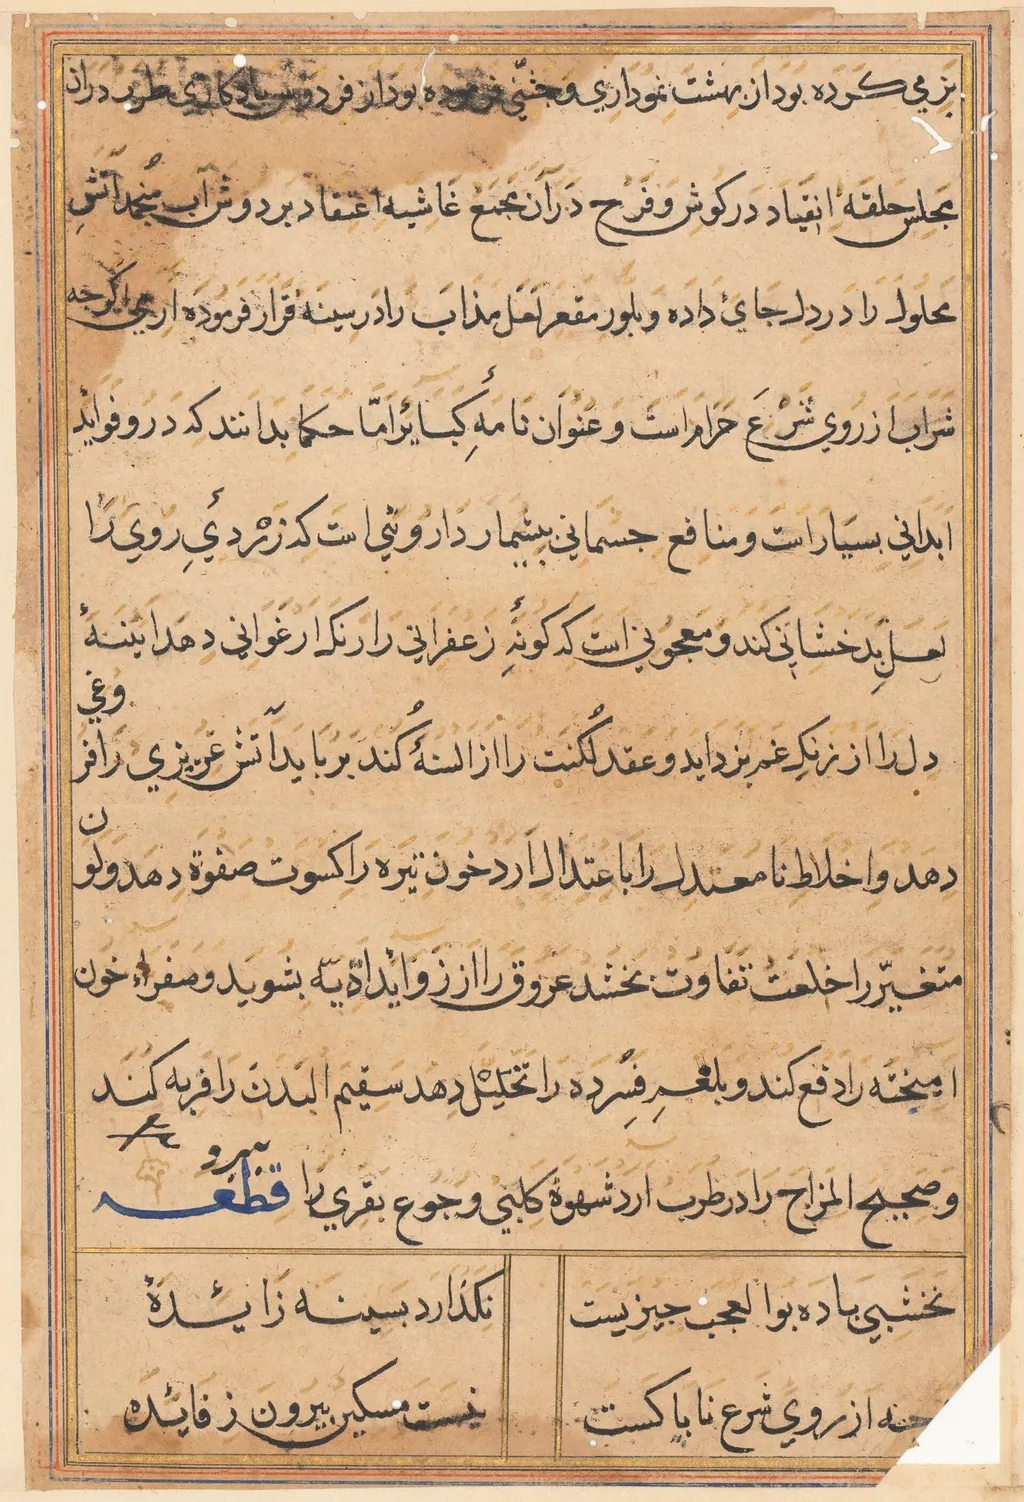 بزمي كرده بود از بهشت نموداري و جشني فرموده بود از فردوس يادكاري طرب دران
مجلس حلقهٔ انقياد در كوش و فرح در آن مجمع غاشيه اعتقاد بر دوش آب منجمد آتش
محلول را در دل جاي داده و بلور مقعر لعل مذاب را در سينه قرار فرموده اري اكرچه
شراب از روي شرع حرام است و عنوان نامهِ كبائر امّا حكما بدانند كه درو فوائد
ابداني بسيار است و منافع جسماني بيشمار داروئي است كه زردئِ روي را
لعل بدخشاني كند و معجوني است كه كونهٔ زعفراني را رنك ارغواني دهد ائنهٔ
دل را از زنك غم بزدايد و عقد لكنت را از السنهٔ كند بربايد آتش غريزي را فر
وغي
دهد و اخلاط نا معتدل را باعتدال ارد خون تيره را كسوت صفوة دهد و لو
ن
متغيّر را خلعت تفاوت بخشد عروق را از زوائد ادّيه بشويد و صفراء خون
اميخته را دفع كند و بلغم فسرده را تحليل دهد سقيم البدن را فربه كند
و صحيح المزاج را در طرب ارد شهوة كلبي و جوع بقري را قطعه
ببرو
نخشبي باده بوالعجب چيزيست نكذارد بسينه زائدهٔ
چه از روي شرع ناپاكست نيست مسكين بيرون ز فائده